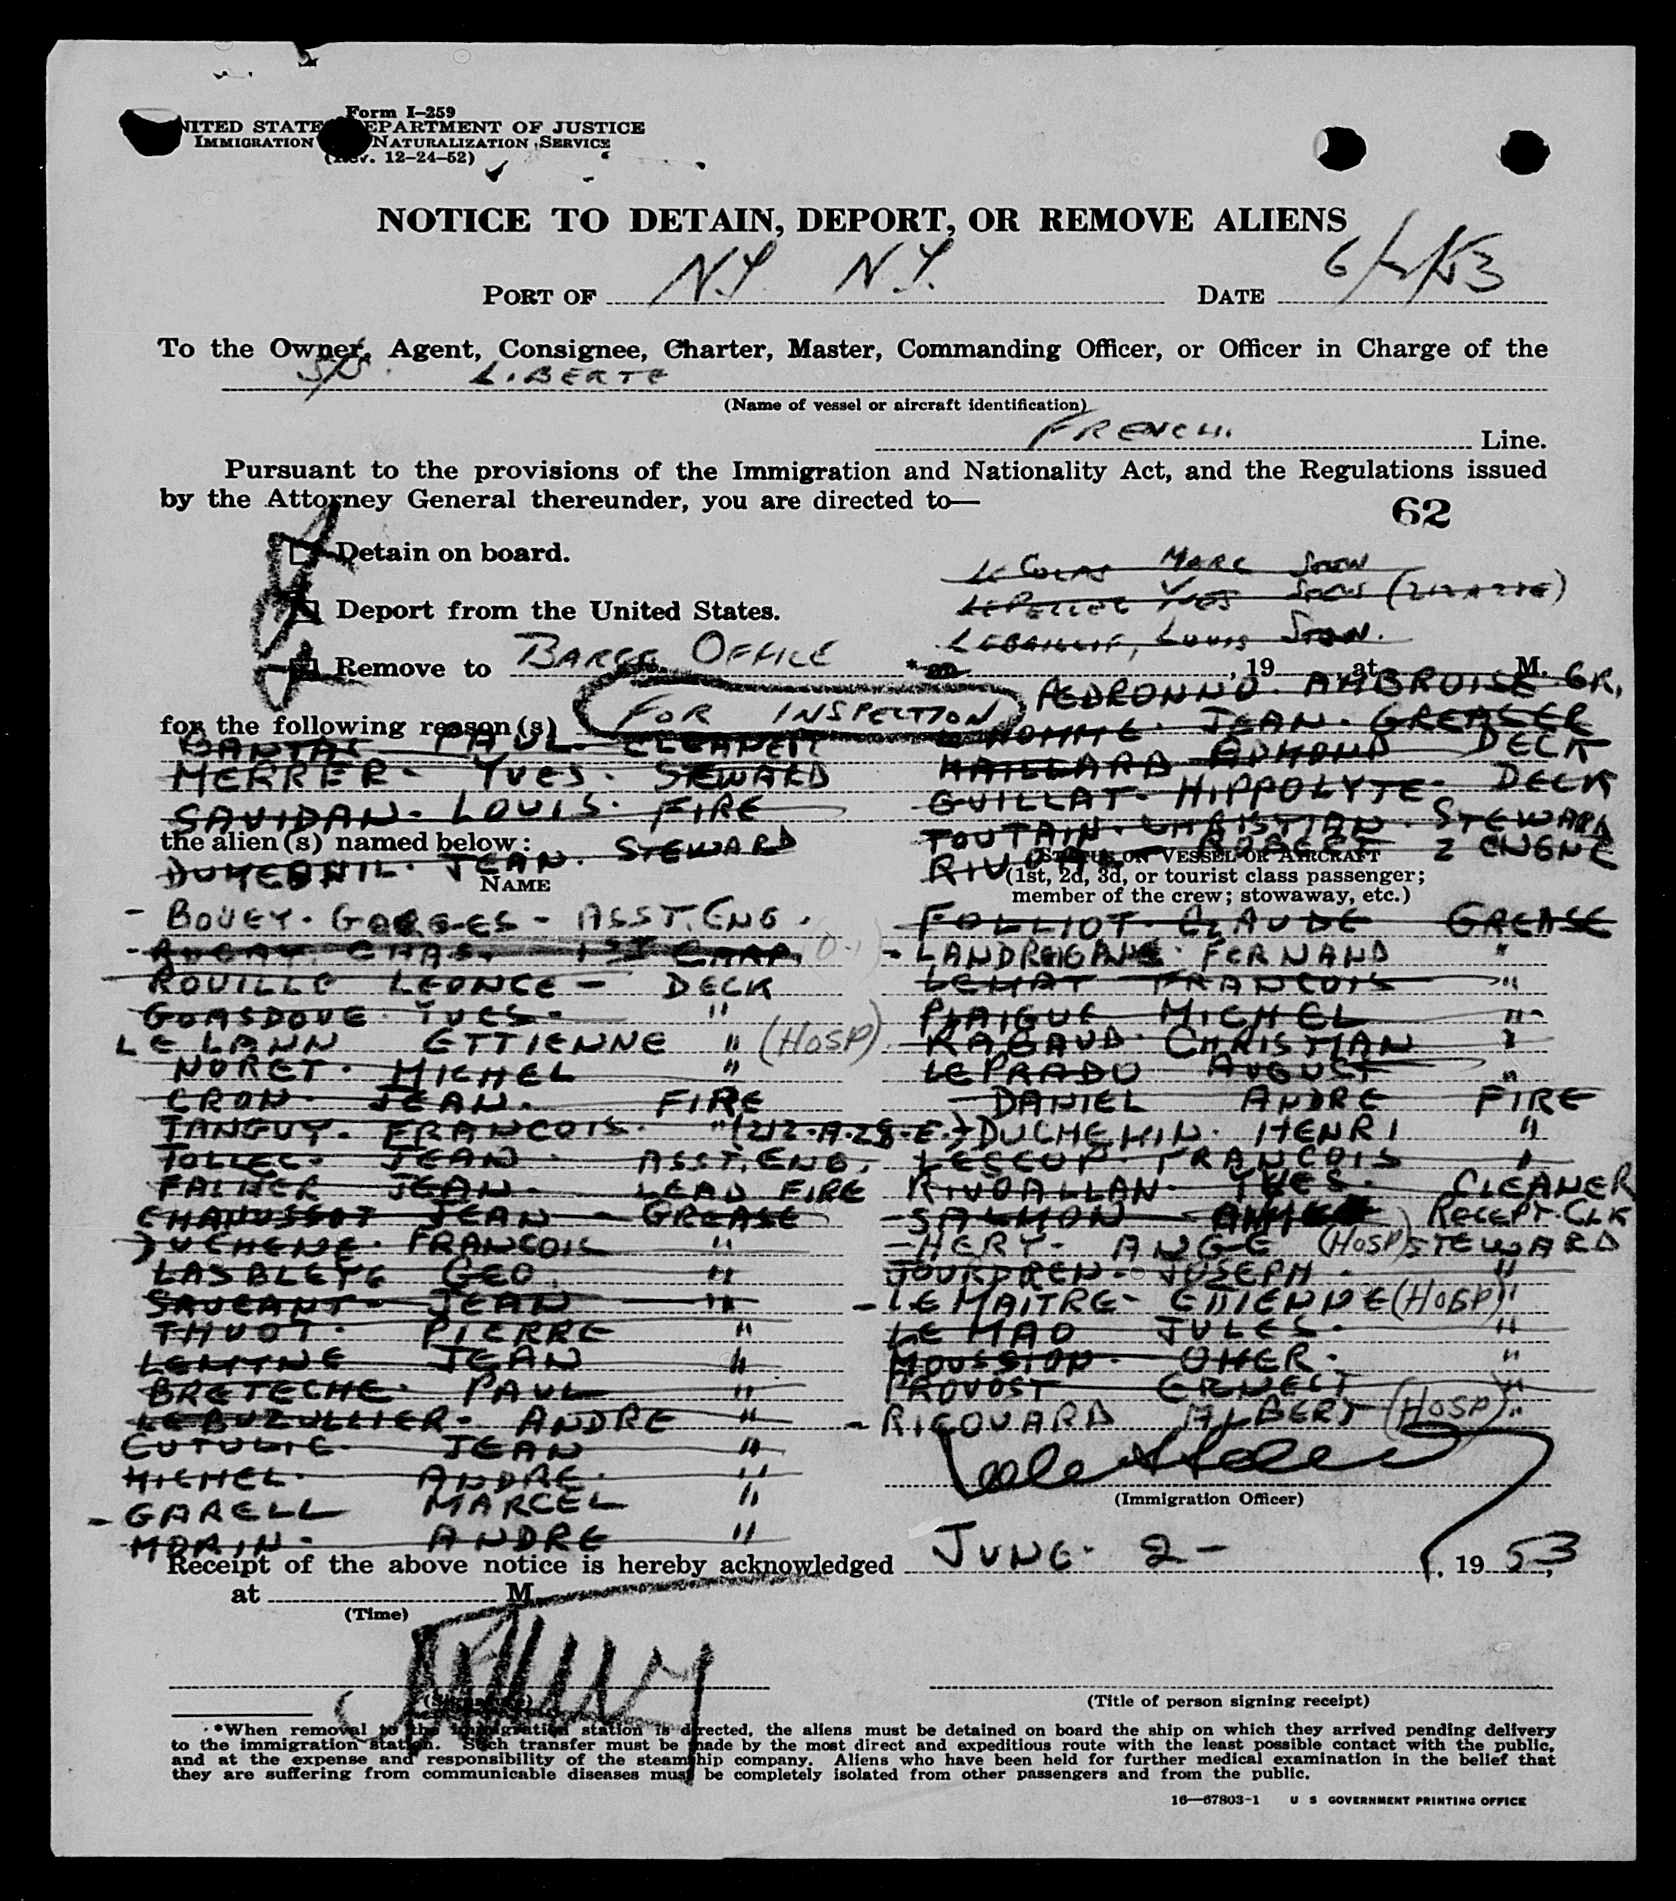 Form I-259
UNITED STATES DEPARTMENT OF JUSTICE
IMMIGRATION NATURALIZATION SERVICE
(Rev. 12-24-52)
NOTICE TO DETAIN, DEPORT, OR REMOVE ALIENS
PORT OF N.Y. N.Y. DATE 6/2/53
To the Owner, Agent, Consignee, Charter, Master, Commanding Officer, or Officer in Charge of the
S/S. LIBERTE
(Name of vessel or aircraft identification)
FRENCH. Line.
Pursuant to the provisions of the Immigration and Nationality Act, and the Regulations issued
by the Attorney General thereunder, you are directed to—
62
Detain on board.
LE MARC
Deport from the United States.
LEPELLEC YVES
LEBAILLIF, LOUIS
Remove to BARGE OFFICE * , 19 , at M.
PEDRONNO. AMBROISE. GR.
for the following reason(s) FOR INSPECTION
PAUL. CLEANER
JEAN. GREASER
MERRER. YVES. STEWARD
MAILLARD EDMOND DECK
SAVIDAN. LOUIS. FIRE
GUILLAT. HIPPOLYTE. DECK
the alien(s) named below:
TOUTAIN. CHRISTIAN. STEWARD
DUMESNIL. JEAN. STEWARD
ROBERT 2 ENGNE
STATUS ON VESSEL OR AIRCRAFT
NAME
(1st, 2d, 3d, or tourist class passenger;
member of the crew; stowaway, etc.)
- BOUEY. GEORGES - ASST. ENG.
- CHAS. 1ST CARP.
ROUILLE LEONCE - DECK
GOASDOUE. YVES. "
LE LANN ETTIENNE " (HOSP)
NORET. MICHEL "
CRON. JEAN. FIRE
TANGUY. FRANCOIS. "
TOLLEC. JEAN. ASST. ENG.
JEAN. LEAD FIRE
CHANUSSOT JEAN - GREASE
DUCHENE. FRANCOIS "
LASBLEYE GEO. "
SAVEANT. JEAN "
THUOT. PIERRE "
LEMYNE JEAN "
BRETECHE. PAUL "
LEBUZULLIER. ANDRE "
JEAN "
MICHEL. ANDRE. "
- GARELL MARCEL "
MORIN. ANDRE "
FOLLIOT. CLAUDE GREASE
- FERNAND "
LEMAT FRANCOIS "
PLAIGUE MICHEL "
RAGAUD. CHRISTIAN "
LEPRADU AUGUST "
DANIEL ANDRE FIRE
DUCHEMIN. HENRI "
FRANCOIS "
RIVOALLAN. YVES. CLEANER
- SALMON RECEPT. CLK
- HERY. ANGE (HOSP) STEWARD
JOURDREN. JOSEPH. "
- LE MAITRE. ETIENNE (HOSP) "
LE MAO JULES. "
MOUSSION. OMER. "
PROVOST ERNEST "
- RIGOUARD ALBERT (HOSP) "
(Immigration Officer)
Receipt of the above notice is hereby acknowledged JUNE. 2 - , 1953,
at M
(Time)
(Signature)
(Title of person signing receipt)
*When removal to the immigration station is directed, the aliens must be detained on board the ship on which they arrived pending delivery
to the immigration station. Such transfer must be made by the most direct and expeditious route with the least possible contact with the public,
and at the expense and responsibility of the steamship company. Aliens who have been held for further medical examination in the belief that
they are suffering from communicable diseases must be completely isolated from other passengers and from the public.
16—67803-1 U S GOVERNMENT PRINTING OFFICE